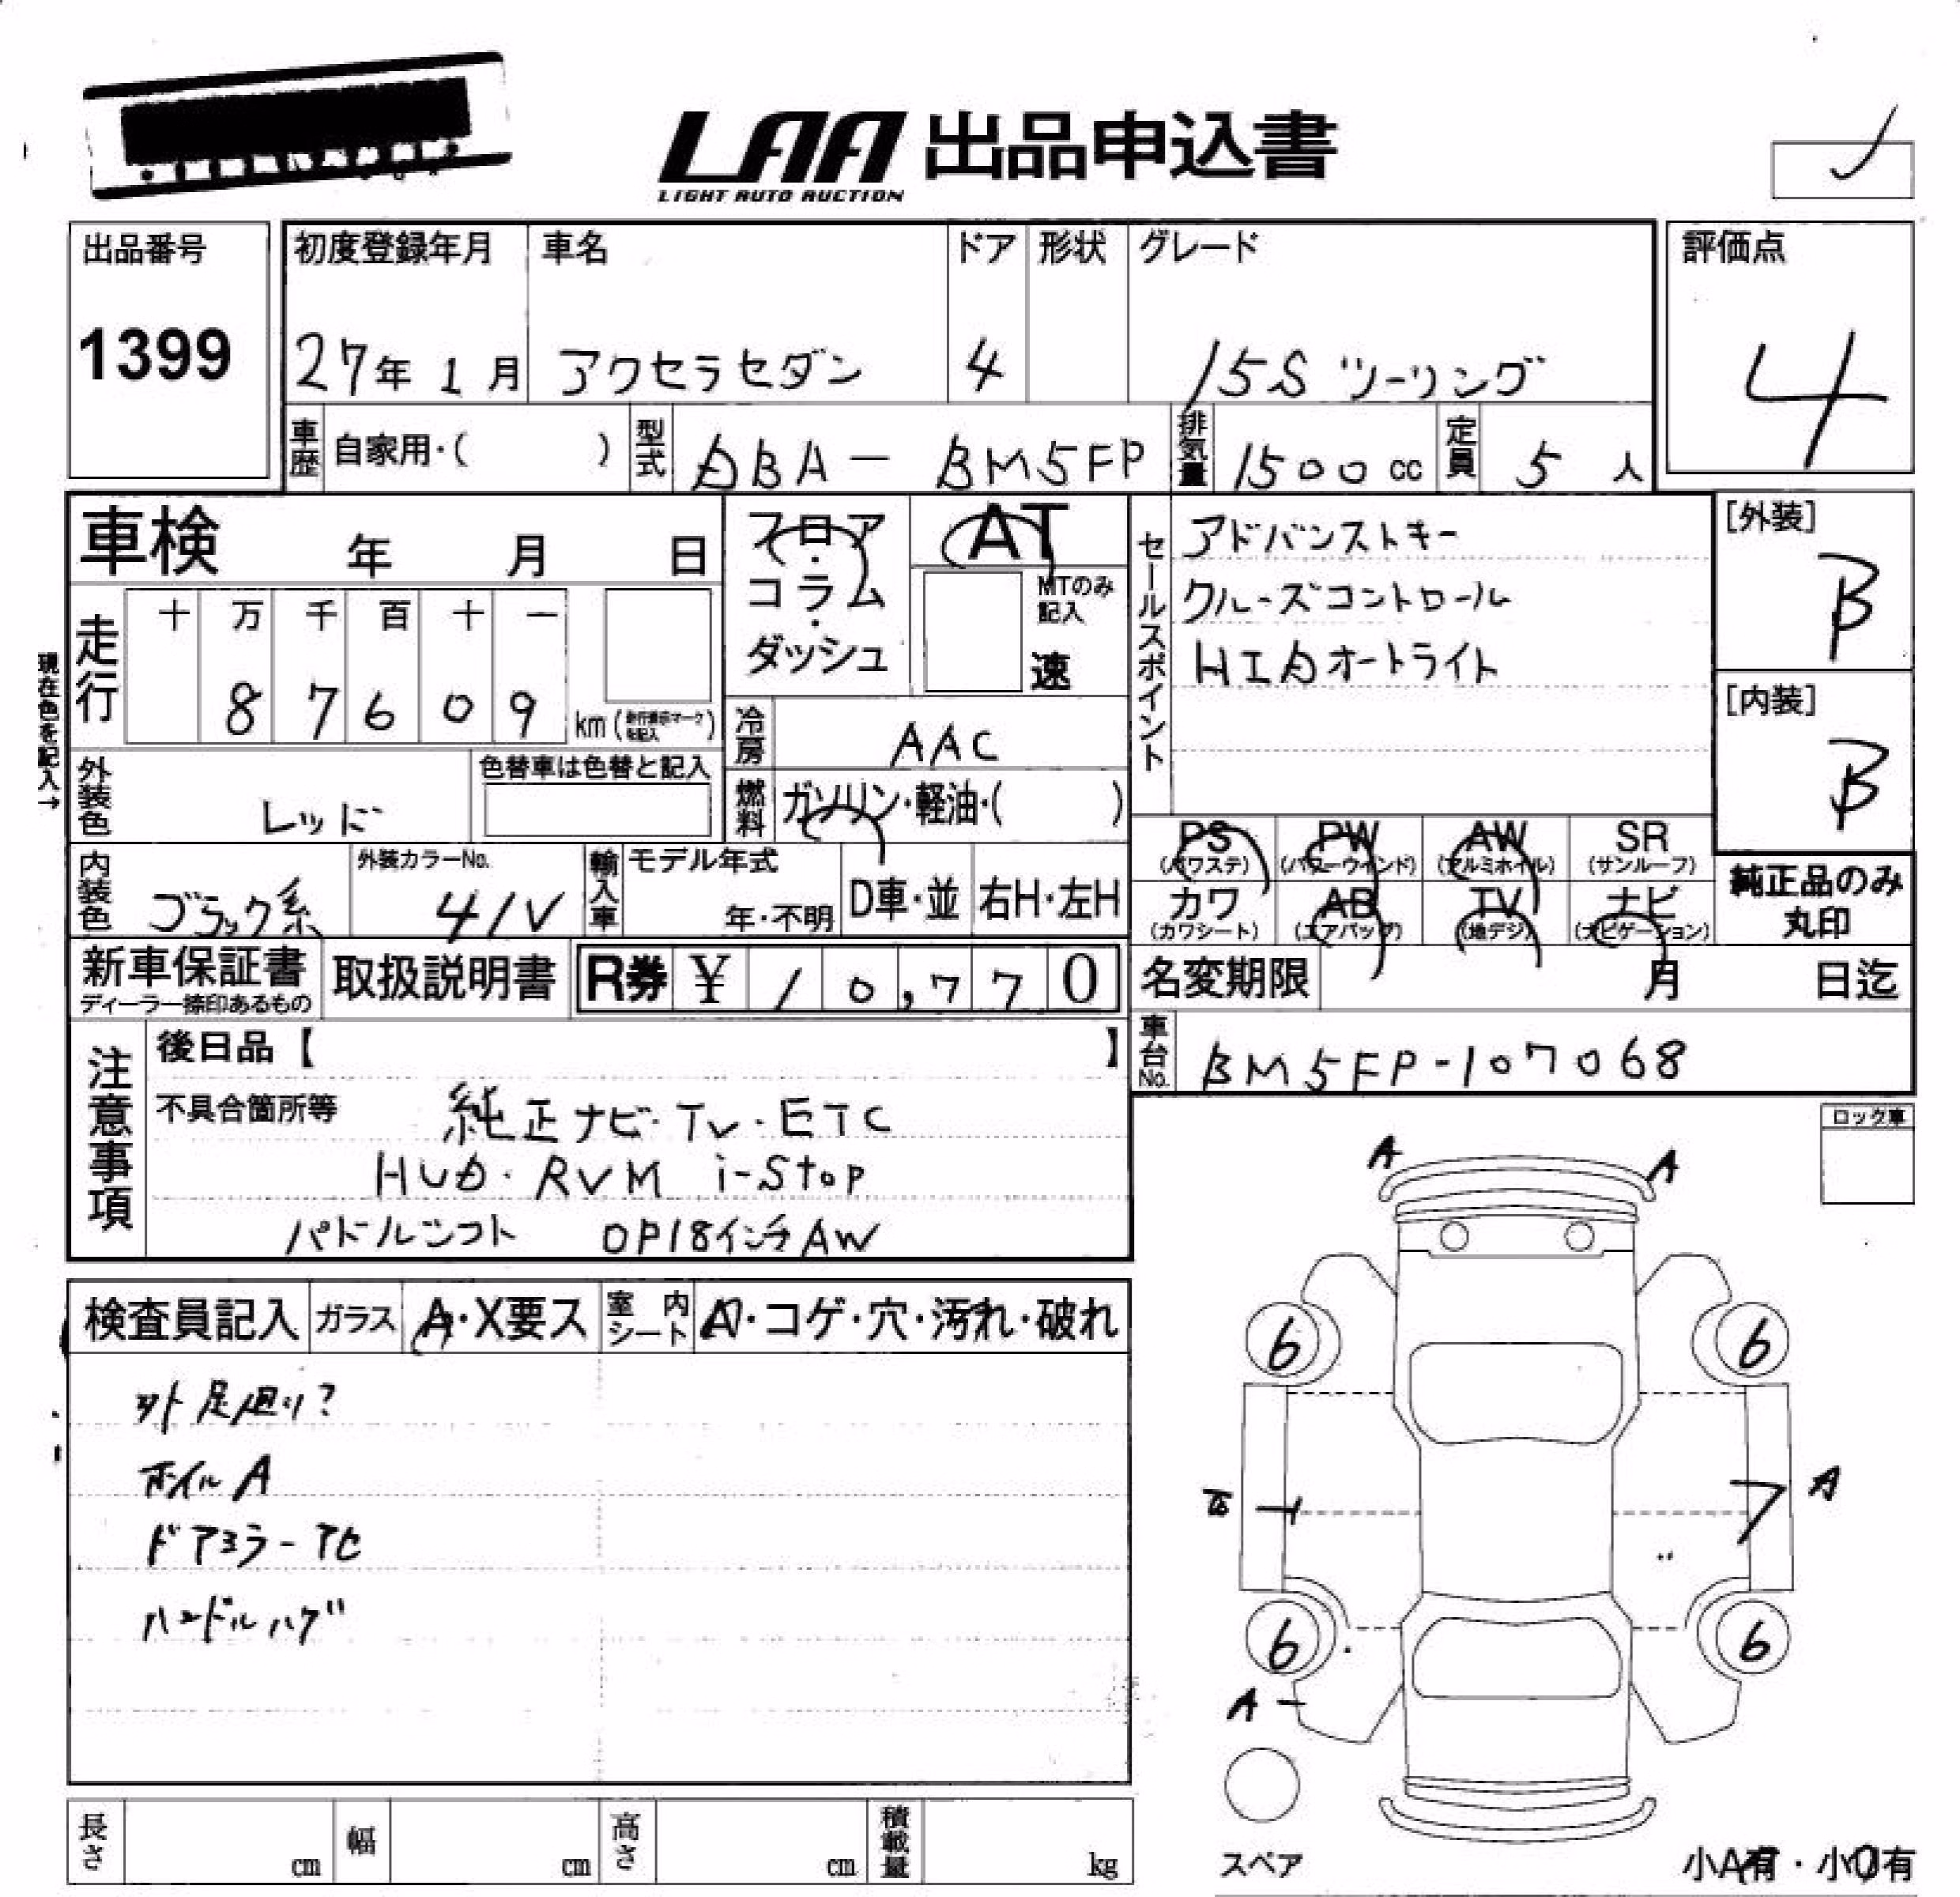 LAA 出品申込書
LIGHT AUTO AUCTION
出品番号
1399
初度登録年月 車名 ドア 形状 グレード
27年 1月 アクセラセダン 4 15S ツーリング
評価点
4
車歴 自家用・( ) 型式 DBA-BM5FP 排気量 1500 cc 定員 5 人
車検 年 月 日
フロア・コラム・ダッシュ
AT
MTのみ記入
速
セールスポイント
アドバンストキー
クルーズコントロール
HIDオートライト
[外装]
B
[内装]
B
現在色を記入→
走行 十 万 千 百 十 一
8 7 6 0 9 km (走行表示マークを記入)
冷房 AAC
外装色 レッド 色替車は色替と記入
燃料 ガソリン・軽油・( )
PS (パワステ) PW (パワーウィンド) AW (アルミホイル) SR (サンルーフ)
カワ (カワシート) AB (エアバッグ) TV (地デジ) ナビ (ナビゲーション)
純正品のみ丸印
内装色 ブラック系 外装カラーNo. 41V 輸入車 モデル年式 年・不明 D車・並 右H・左H
新車保証書 ディーラー捺印あるもの 取扱説明書 R券 ¥ 10,770
名変期限 月 日迄
車台No. BM5FP-107068
注意事項
後日品【 】
不具合箇所等 純正ナビ・TV・ETC
HUD・RVM i-stop
パドルシフト OP18インチAW
ロック車
検査員記入 ガラス A・X要ス 室内シート A・コゲ・穴・汚れ・破れ
ホイルA
ドアミラーアセ
ハンドルハゲ
A A
6 6
A
6 6
A
スペア
小A有・小U有
長さ cm 幅 cm 高さ cm 積載量 kg